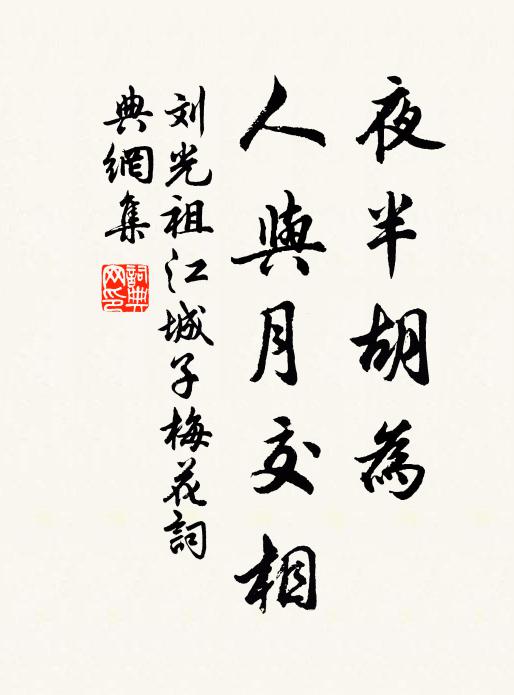 夜半胡為
人與月交相
刘光祖江城子梅花詞
典網集
詞典网印